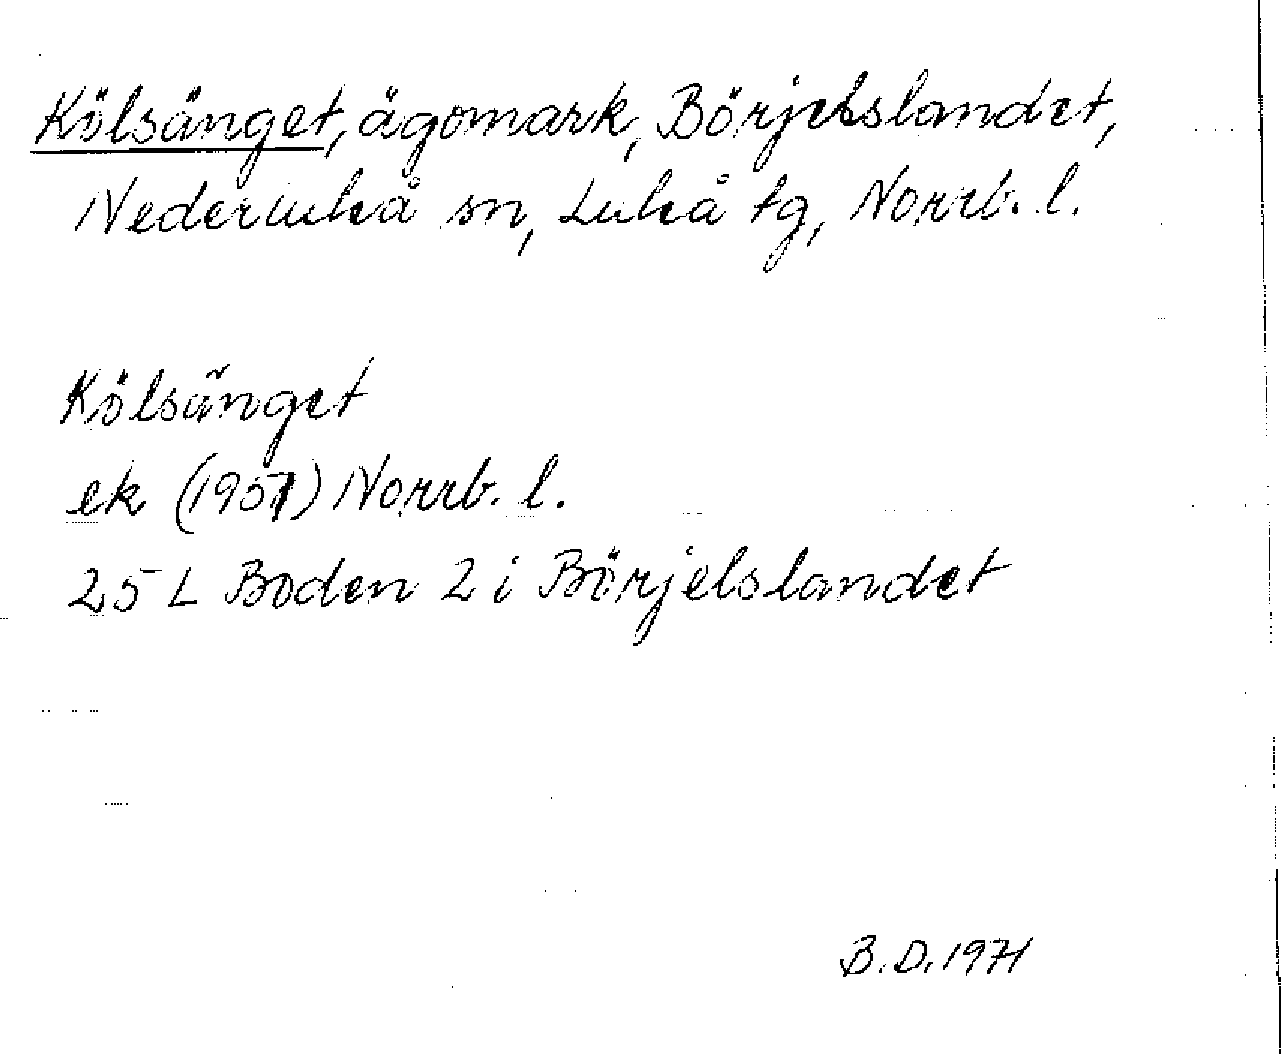 Kölsänget, ägomark, Börjelslandet,
Nederluleå sn, Luleå tg, Norrb. l.
Kölsänget
ek (1951) Norrb. l.
25 L Boden 2 i Börjelslandet
B.D. 1971